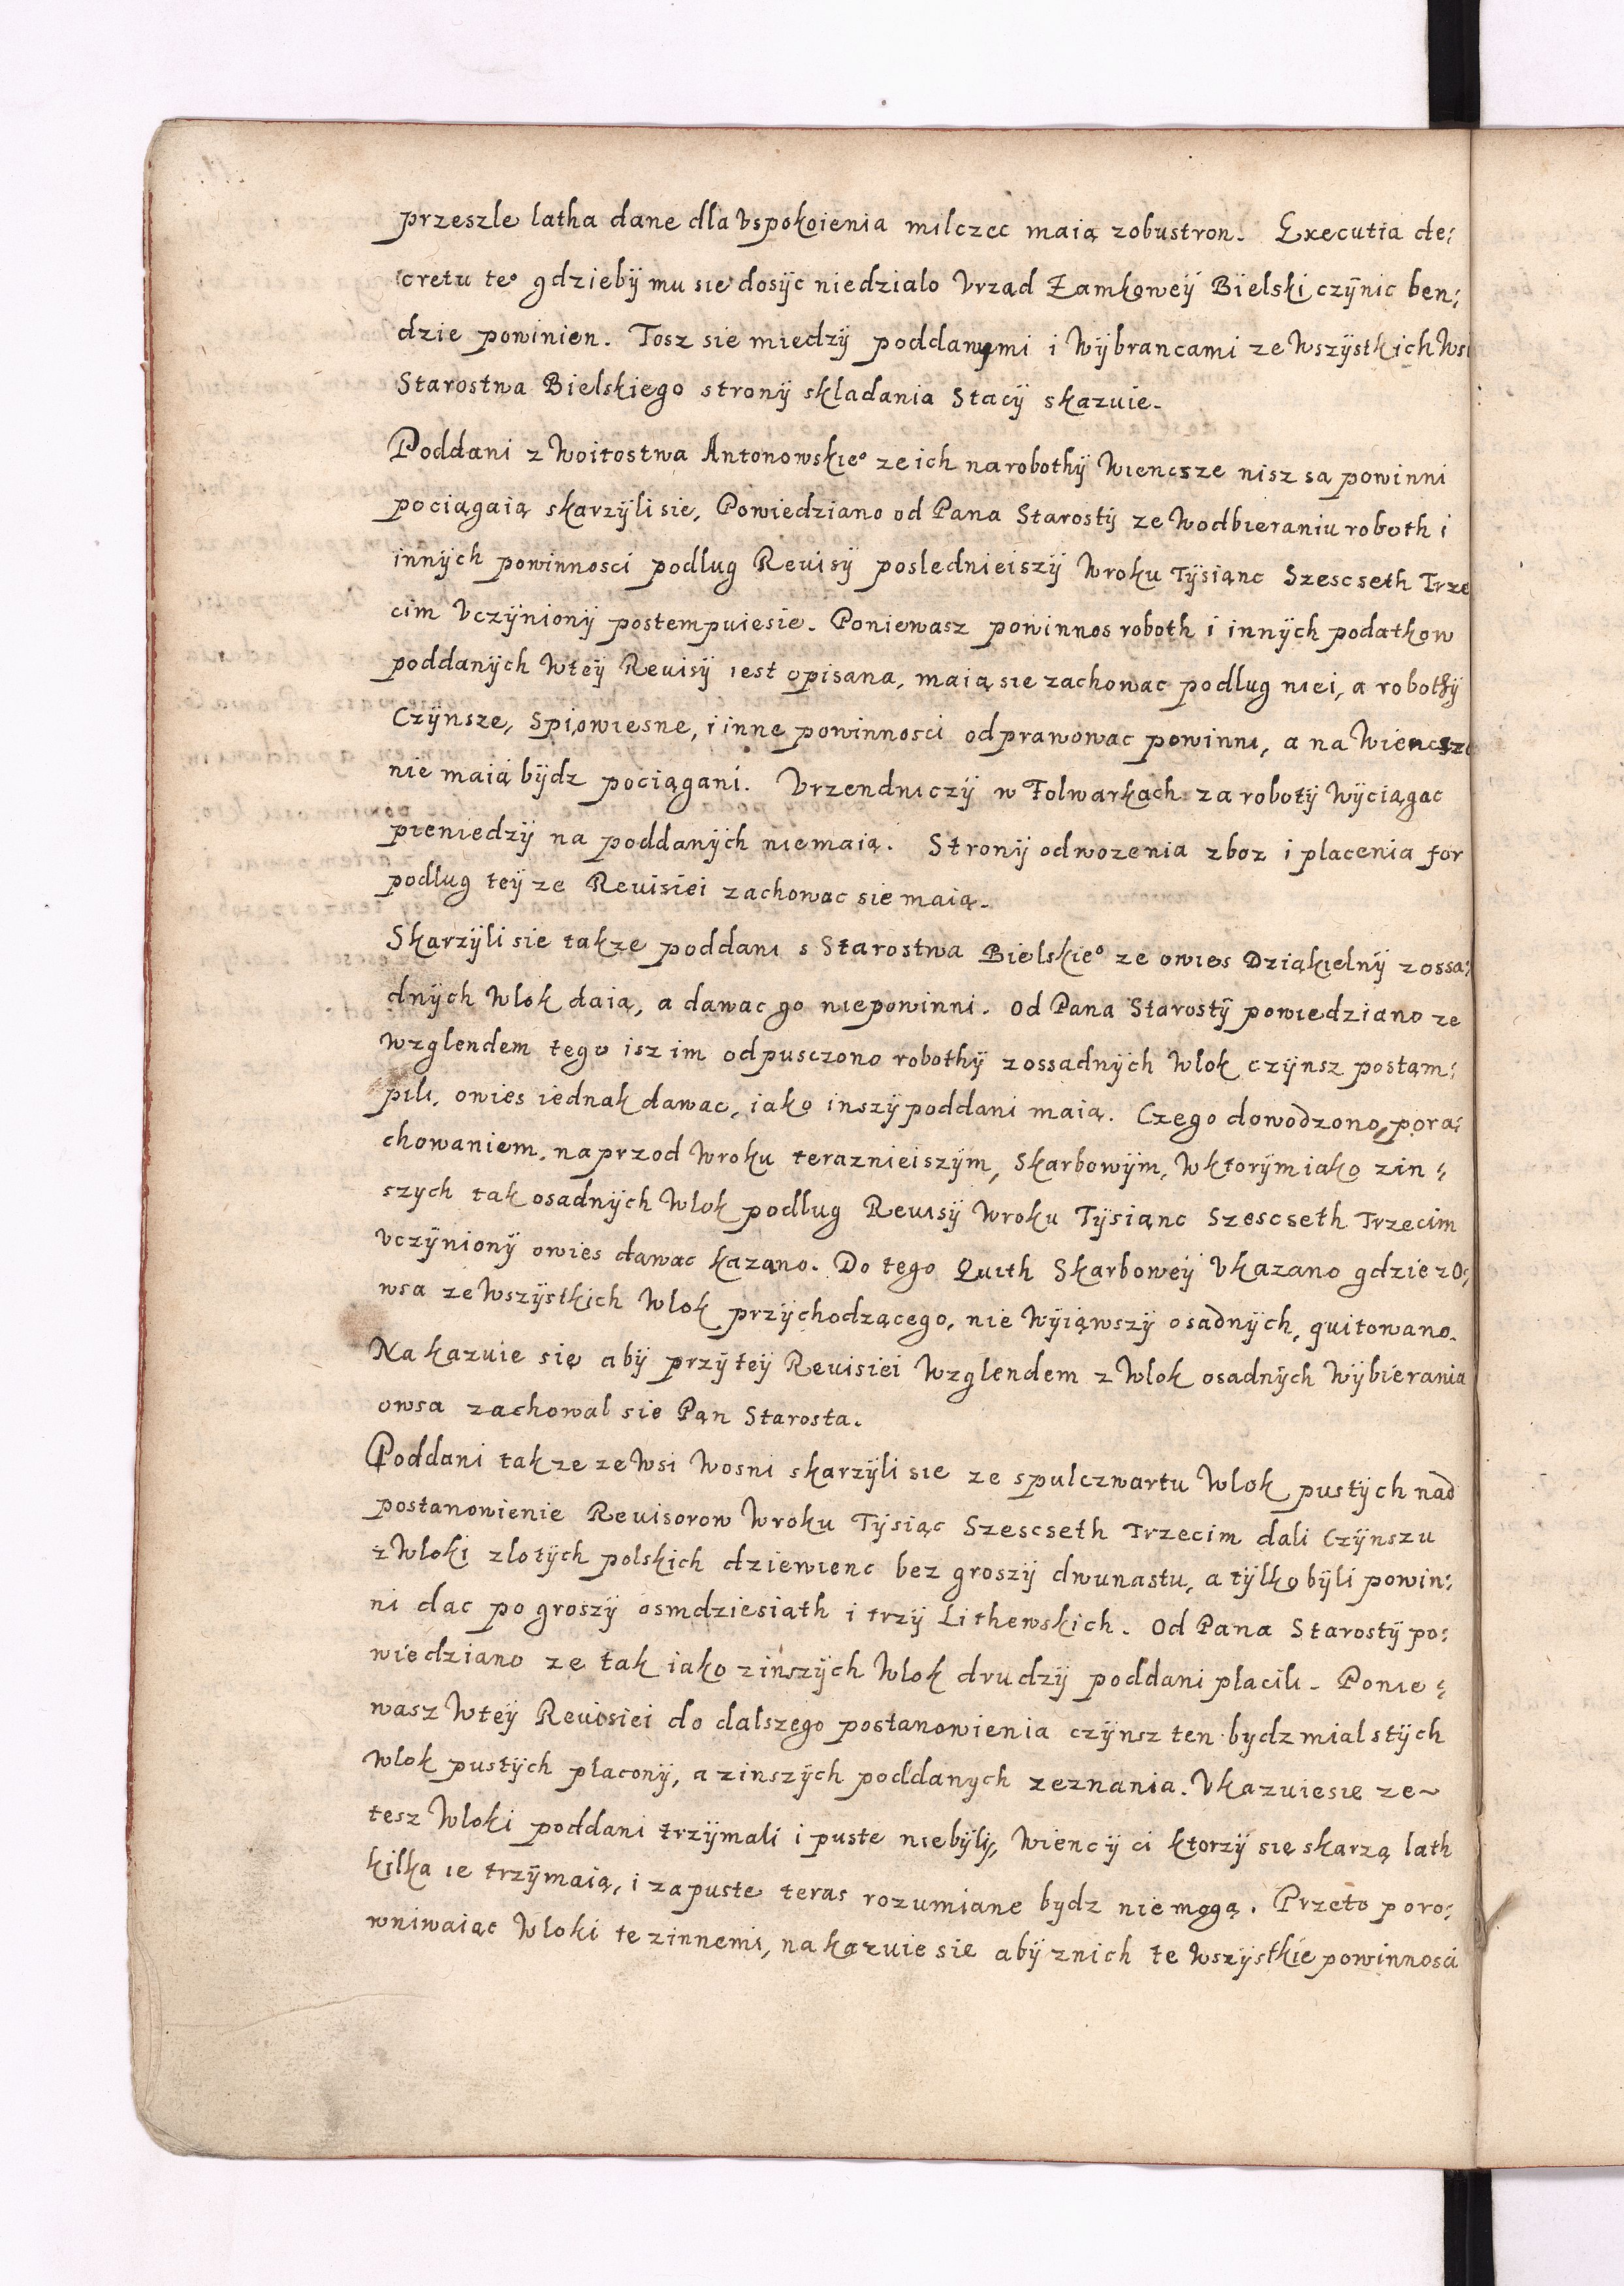 przeszle latha dane dla Vspokoienia milczec maią zobustron. Executia de:
cretu te° gdziebÿ mu sie dosÿc niedzialo Vrząd Zamkoweÿ Bielski czÿnic ben:
dzie powinien. Tosz sie miedzÿ poddanymi i Wÿbrancami ze Wszÿstkich Wsi
Starostwa Bielskiego stronÿ skladania Stacÿ skazuie.
Poddani z Woitostwa Antonowskie° ze ich na robothÿ Wiencsze nisz sa powinni
pociągaią skarzÿli sie, Powiedziano od Pana Starostÿ ze Wodbieraniu roboth i
innÿch powinnosci podlug Reuisÿ poslednieiszÿ Wroku Tÿsianc Szescseth Trze
cim Vczÿnionÿ postempuiesie. Poniewasz powinnos roboth i innÿch podatkow
poddanÿch Wteÿ Reuisÿ iest opisana, maią sie zachowac podlug niei, a robothÿ
Czÿnsze, Spiowiesne, i inne powinnosci odprawowac powinni, a na Wiencsze
nie maią bÿdz pociągani. Vrzendniczÿ w Folwarkach za robotÿ Wÿciągac
pieniedzÿ na poddanÿch niemaią. Stronÿ odwozenia zboz i placenia for
podlug teÿ ze Reuisiei zachowac sie maią.
Skarzÿli sie takze poddani s Starostwa Bielskie° ze owies Dziakielnÿ z ossa:
dnÿch Wlok daią, a dawac go niepowinni. Od Pana Starostÿ powiedziano ze
wzglendem tego isz im odpusczono robothÿ z ossadnÿch Wlok czÿnsz postam:
pili, owies iednak dawac, iako inszÿ poddani maią. Czego dowodzono, pora:
chowaniem, naprzod Wroku teraznieiszÿm, Skarbowÿm, Wktorÿm iako zin:
szych tak osadnÿch Wlok podlug Reuisÿ Wroku Tÿsianc Szescseth Trzecim
Vczÿnionÿ owies dawac kazano. Do tego Quith Skarboweÿ Vkazano gdzie z O:
wsa ze Wszÿstkich Wlok przÿchodzącego, nie Wÿiąwszÿ osadnÿch, quitowano.
Nakazuie się abÿ przÿ teÿ Reuisiei Wzglendem z Wlok osadnÿch Wÿbierania
owsa zachowal sie Pan Starosta.
Poddani takze ze Wsi Wosni skarzÿli sie ze spulczwartu Wlok pustÿch nad
postanowienie Reuisorow Wroku Tÿsiąc Szescseth Trzecim dali Czÿnszu
z Wloki zlotÿch polskich dziewienc bez groszÿ dwunastu, a tÿlko bÿli powin:
ni dac po groszÿ osmdziesiath i trzÿ Lithewskich. Od Pana Starostÿ po:
wiedziano ze tak iako zinszÿch Wlok drudzÿ poddani placili. Ponie:
wasz Wteÿ Reuisiei do dalszego postanowienia czÿnsz ten bydz mial stÿch
Wlok pustÿch placonÿ, a zinszÿch poddanych zeznania. Vkazuiesie ze~
tesz Wloki poddani trzÿmali i puste niebÿlÿ, Wiencÿ ci ktorzÿ się skarzą lath
kilka ie trzÿmaią, i zapuste teras rozumiane bydz niemogą. Przeto poro:
wniwaiąc Wloki te zinnemi, nakazuie sie abÿ znich te Wszÿstkie powinnosci